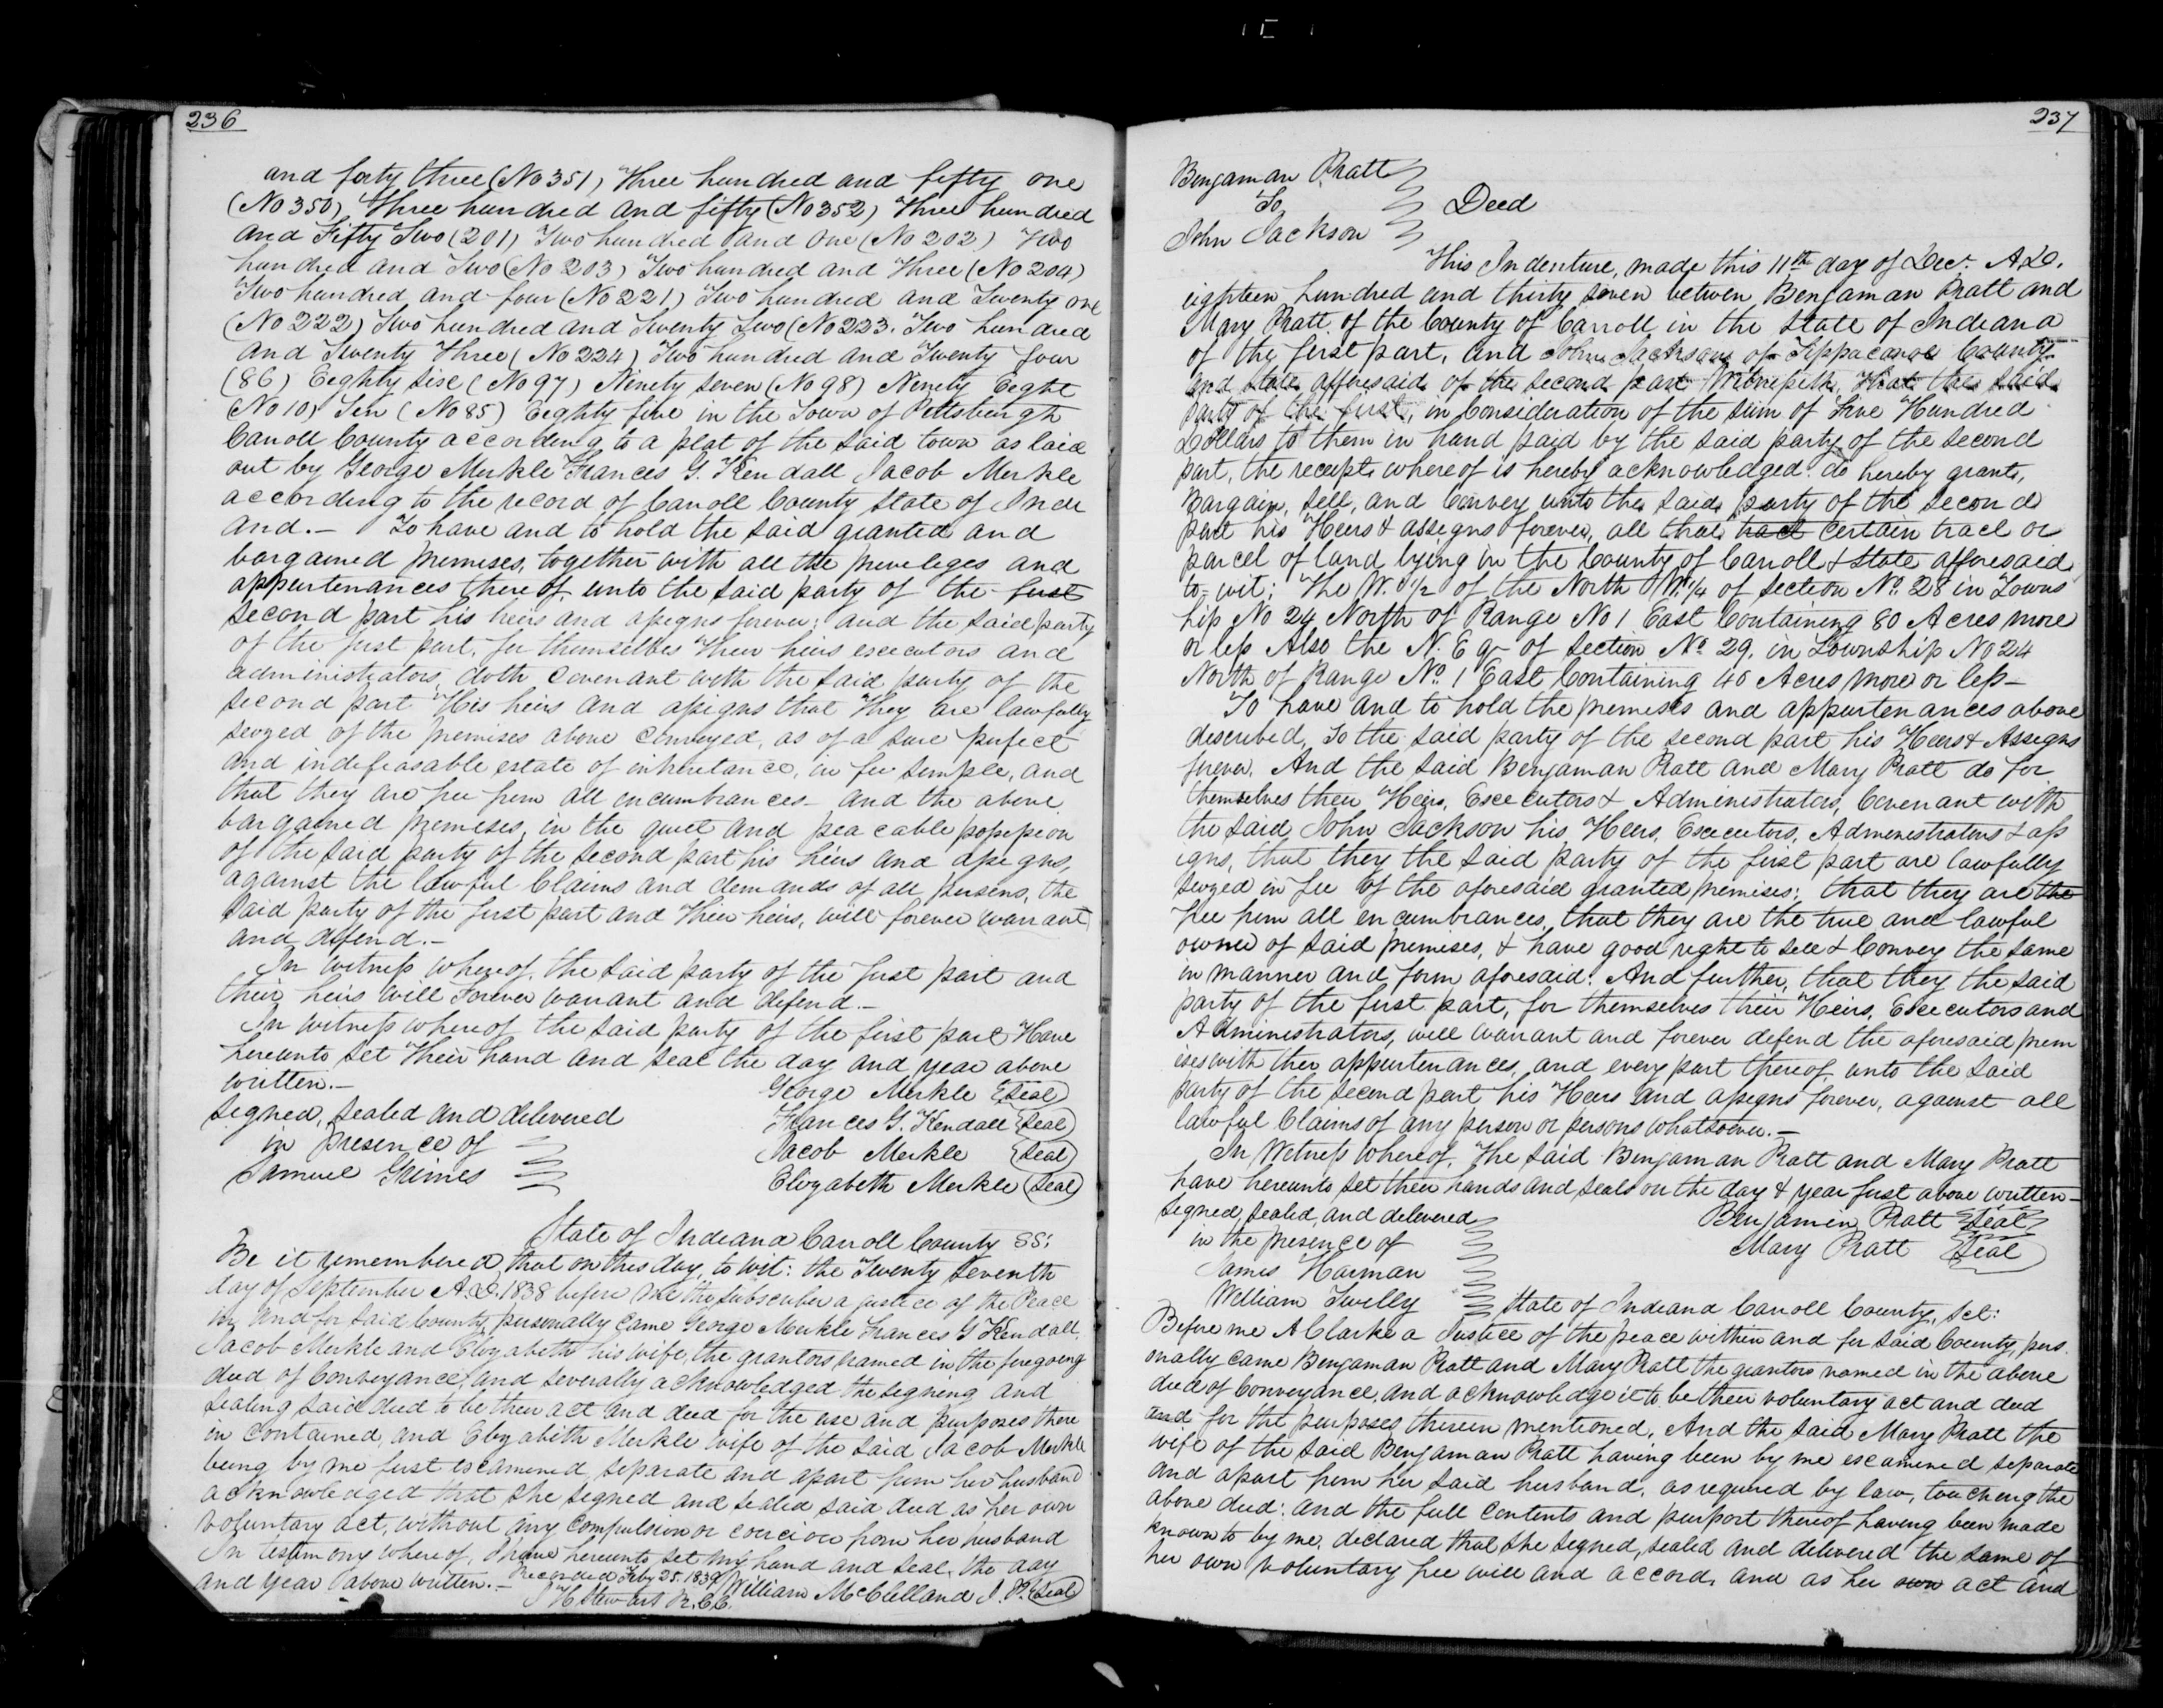 236
and forty three (No 351) Three hundred and fifty one
(No 350) Three hundred and fifty (No 352) Three hundred
and Fifty Two (201) Two hundred and One (No 202) Two
hundred and Two (No 203) Two hundred and Three (No 204)
Two hundred and four (No 221) Two hundred and Twenty one
(No 222) Two hundred and Twenty Two (No 223. Two hundred
and Twenty Three (No 224) Two hundred and Twenty four
(86) Eighty six (No 97) Ninety seven (No 98) Ninety Eight
(No 10) Ten (No 85) Eighty five in the Town of Pittsburgh
Carroll County according to a plat of the said town as laid
out by George Merkle Frances G. Kendall Jacob Merkle
according to the record of Carroll County State of Indi
and.— To have and to hold the said granted and
bargained premises, together with all the priveleges and
appurtenances thereof, unto the said party of the first
second part his heirs and assigns forever; and the said party
of the first part, for themselbes their heirs executors and
administrators, doth covenant with the said party of the
second part His heirs and assigns that They are lawfully
seized of the premises above conveyed, as of a sure perfect
and indefeasable estate of inheritance, in fee simple, and
that they are free from all encumbrances— and the above
bargained premises, in the quiet and peacable possession
of the said party of the second part his heirs and assigns,
against the lawful Claims and demands of all persons, the
said party of the first part and their heirs, will forever warrant
and defend.—
In witness whereof, the said party of the first part and
their heirs will Forever warrant and defend.—
In witness whereof the said party of the first part Have
hereunto set Their hand and seal the day and year above
written.—
George Merkle (Seal)
Signed, Sealed and delivered
Frances G. Kendall (Seal)
in presence of
Jacob Merkle (Seal)
Samuel Grimes
Elizabeth Merkle (Seal)
State of Indiana Carroll County SS:
Be it remembered, that on this day, to wit: the Twenty Seventh
day of September A.D. 1838 before me the subscriber a justice of the Peace
in and for said County, personally came George Merkle Frances G Kendall,
Jacob Merkle and Elizabeth his wife, the grantors named in the foregoing
deed of Conveyance, and severally acknowledged the signing and
sealing said deed to be their act and deed for the use and purposes there
in contained, and Elizabeth Merkle wife of the said Jacob Merkle
being by me first examined, separate and apart from her husband
acknowledged that she signed and sealed said deed as her own
voluntary act, without any compulsion or coercion from her husband
In testimony whereof, I have hereunto set my hand and seal, the day
and year above written.— Recorded Feby 25. 1839 William McClelland J.P. (Seal)
J H Stewart R.C.C.
237
Benjaman Pratt
To
Deed
John Jackson
This Indenture, made this 11th day of Decr. A,D.
eighteen hundred and thirty seven between Benjaman Pratt and
Mary Pratt, of the County of Carroll in the State of Indiana
of the first part, and John Jackson of Tippacanoe County
and State afforesaid of the second part Witnesseth, That the said
party of the first, in Consideration of the sum of Five Hundred
Dollars to them in hand paid by the said party of the second
part, the receipt whereof is hereby acknowledged. do hereby grant,
Bargain, Sell, and Convey unto the said party of the second
part his Heirs & assigns forever, all that tract certain tract or
parcel of land lying in the County of Carroll & State afforesaid
to-wit; The W. 1/2 of the North W. 1/4 of section No. 28 in Towns
hip No 24 North of Range No 1 East Containing 80 Acres more
or less Also the N. E qr of section No. 29. in Township No 24
North of Range No. 1 East Containing 40 Acres more or less—
To have and to hold the premises and appurtenances above
described, To the said party of the second part his Heirs & Assigns
forever. And the said Benjaman Pratt and Mary Pratt do for
themselves their Heirs, Executors & Administrators, Covenant with
the said John Jackson his Heirs, Executors, Administrators & ass
igns, that they the said party of the first part are lawfully
seized in fee of the aforesaid granted premises; that they are the
free from all encumbrances, that they are the true and lawful
owner of said premises, & have good right to sell & Convey the same
in manner and form aforesaid. And further, that they the said
party of the first part, for themselves their Heirs, Executors and
Administrators, will warrant and forever defend the aforesaid prem
ises with their appurtenances, and every part thereof, unto the said
party of the second part his Heirs and assigns forever, against all
lawful Claims of any person or persons whatsoever.—
In Witness whereof, The said Benjaman Pratt and Mary Pratt
have hereunto set their hands and seals on the day & year first above written—
Signed, Sealed, and delivered
Benjamin Pratt Seal
in the presence of
Mary Pratt (Seal)
James Harman
William Twilly
State of Indiana Carroll County, Sct:
Before me A Clarke a Justice of the peace within and for said County, pers
onally came Benjaman Pratt and Mary Pratt the grantors named in the above
deed of Conveyance, and acknowledge it to be their voluntary act and deed
and for the purposes therein mentioned, And the said Mary Pratt the
wife of the said Benjaman Pratt having been by me examined separate
and apart from her said husband, as required by law, toucheng the
above deed: and the full contents and purport thereof having been made
known to by me, declared that she signed, sealed and delivered the same of
her own voluntary free will and accord, and as her own act and